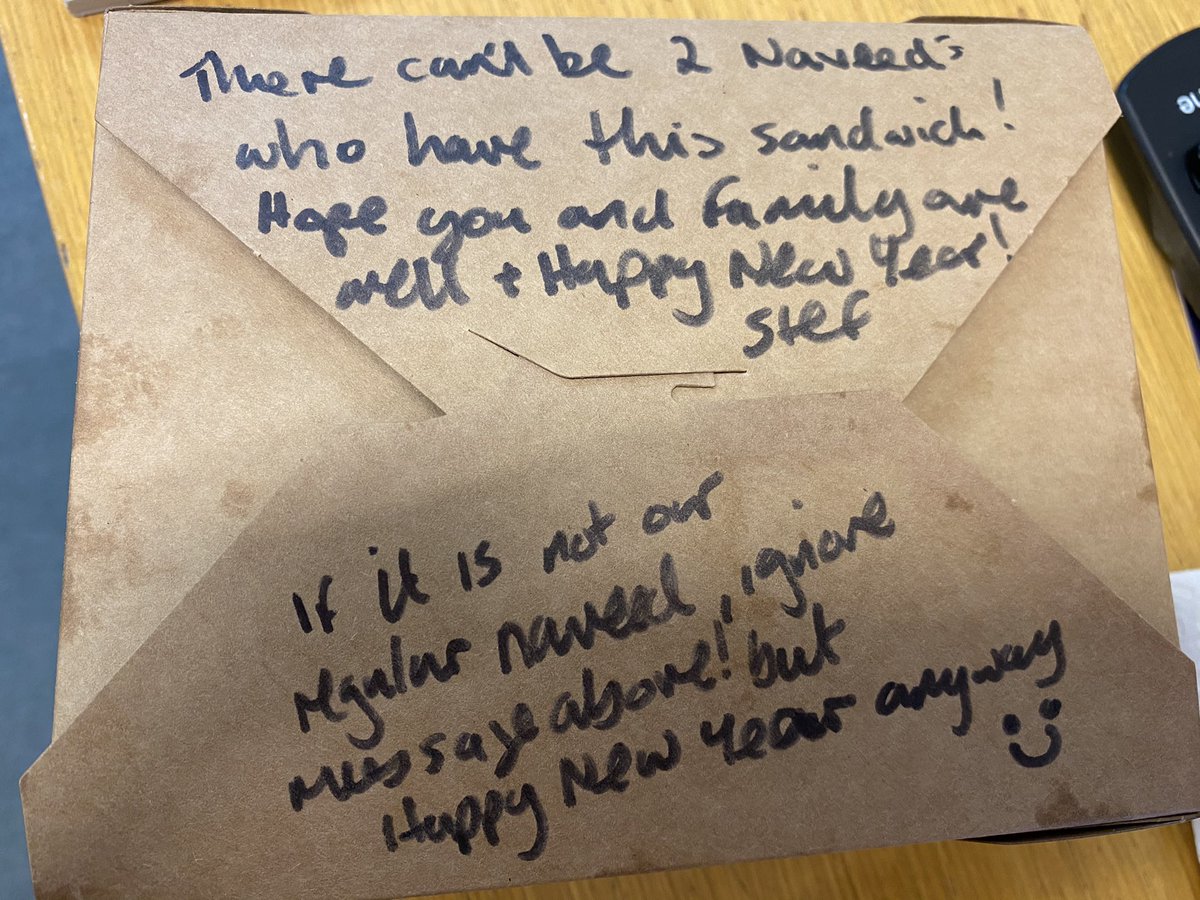 There can't be 2 Naveed's
who have this sandwich!
Hope you and Family are
well + Happy New Year!
Stef
If it is not our
regular naveed, ignore
message above! but
Happy New Year anyway